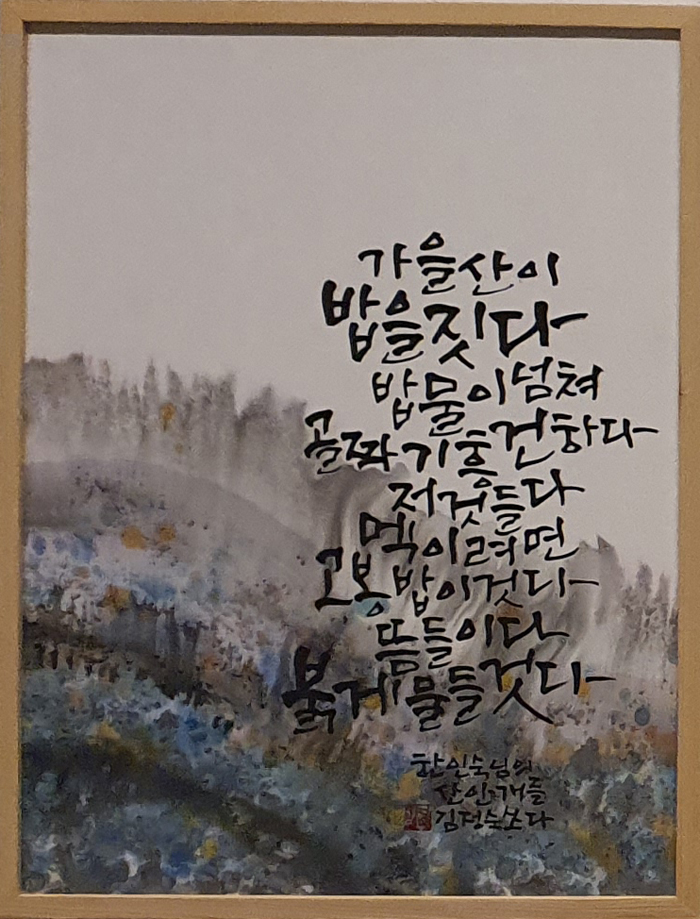 가을산이
밥을짓다
밥물이넘쳐
골짜기흥건하다
저것들다
멕이려면
고봉밥이것다
뜸들이다
붉게물들것다
한인숙님의
산안개를
김정숙쓰다